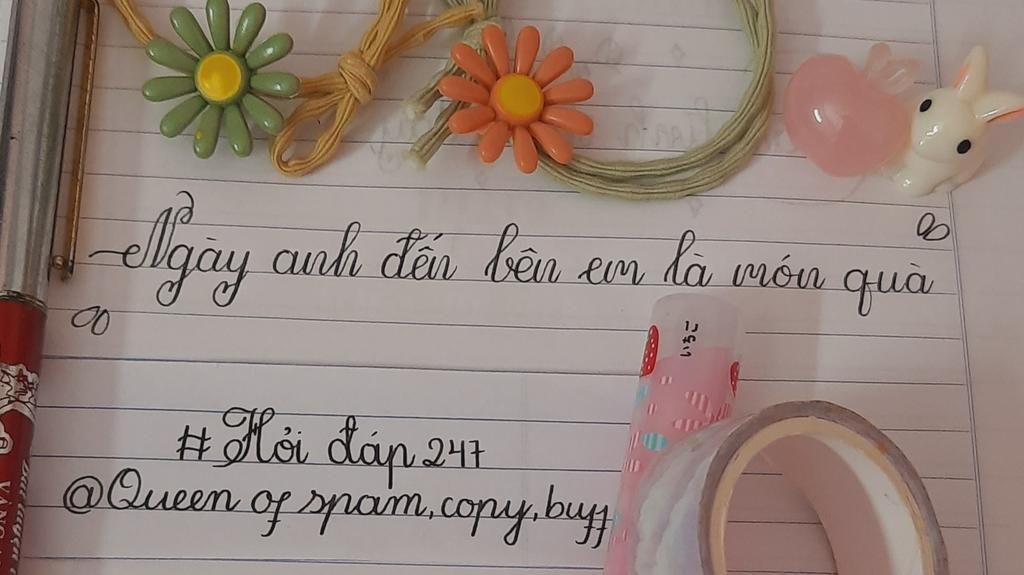 Ngày anh đến bên em là món quà
いちご
# Hỏi đáp 247
@Queen of spam, copy, buff